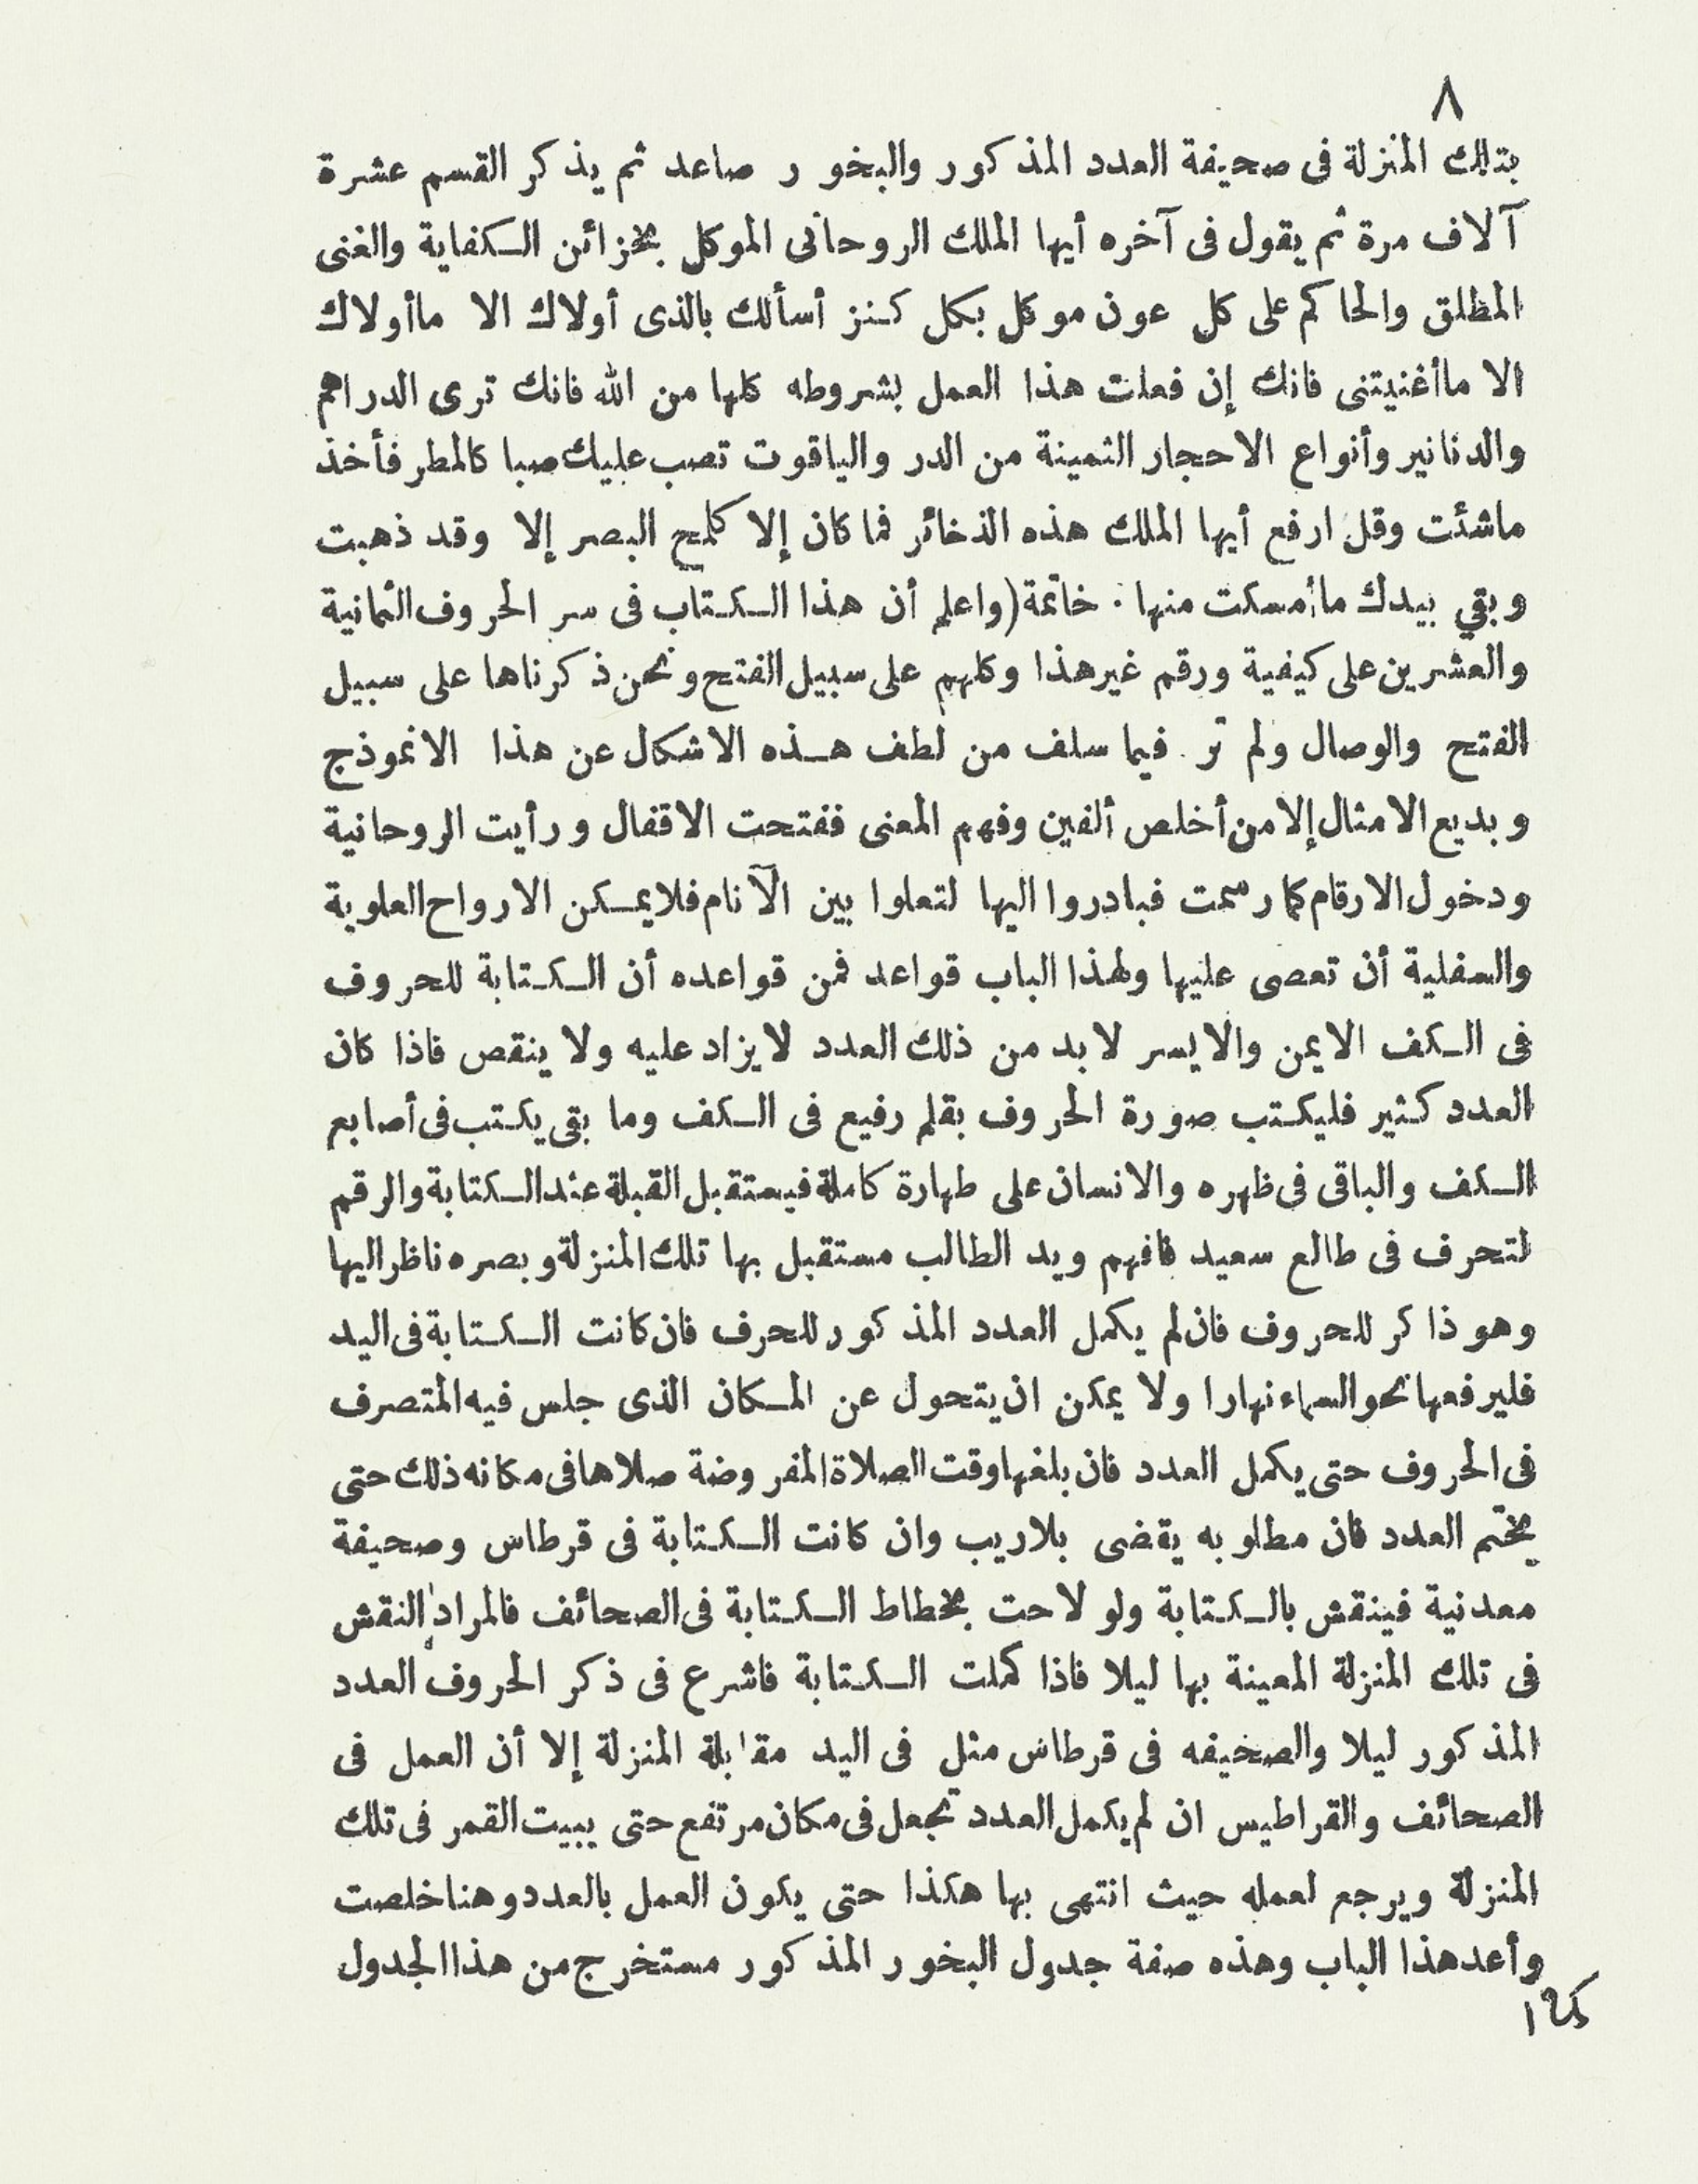 ٨
بتلك المنزلة فى صحيفة العدد المذكور والبخور صاعد ثم يذكر القسم عشرة
آلاف مرة ثم يقول فى آخره أيها الملك الروحانى الموكل بخزائن الكفاية والغنى
المظلق والحاكم على كل عون موكل بكل كنز أسألك بالذى أولاك الا ماأولاك
الا ماأغنيتنى فانك إن فعلت هذا العمل بشروطه كلها من الله فانك ترى الدراهم
والدنانير وأنواع الاحجار الثمينة من الدر والياقوت تصب عليك صبا كالمطر فأخذ
ماشئت وقل ارفع أيها الملك هذه الذخائر فما كان إلا كلمح البصر إلا وقد ذهبت
وبقي بيدك ماأمسكت منها . خاتمة (واعلم أن هذا الكتاب فى سر الحروف الثمانية
والعشرين على كيفية ورقم غير هذا وكلهم على سبيل الفتح ونحن ذكرناها على سبيل
الفتح والوصال ولم تر فيما سلف من لطف هذه الاشكال عن هذا الانموذج
وبديع الامثال إلا من أخلص ألفين وفهم المعنى ففتحت الاقفال ورأيت الروحانية
ودخول الارقام كما رسمت فبادروا اليها لتعلوا بين الآنام فلا يمكن الارواح العلوية
والسفلية أن تعصى عليها ولهذا الباب قواعد فمن قواعده أن الكتابة للحروف
فى الكف الايمن والايسر لابد من ذلك العدد لا يزاد عليه ولا ينقص فاذا كان
العدد كثير فليكتب صورة الحروف بقلم رفيع فى الكف وما بقى يكتب فى أصابع
الكف والباقى فى ظهره والانسان على طهارة كاملة فيستقبل القبلة عند الكتابة والرقم
لتحرف فى طالع سعيد فافهم ويد الطالب مستقبل بها تلك المنزلة وبصره ناظر اليها
وهو ذاكر للحروف فان لم يكمل العدد المذكور للحرف فان كانت الكتابة فى اليد
فليرفعها نحو السماء نهارا ولا يمكن ان يتحول عن المكان الذى جلس فيه المتصرف
فى الحروف حتى يكمل العدد فان بلغها وقت الصلاة المفروضة صلاها فى مكانه ذلك حتى
يختم العدد فان مطلوبه يقضى بلاريب وان كانت الكتابة فى قرطاس وصحيفة
معدنية فينقش بالكتابة ولو لاحت بخطاط الكتابة فى الصحائف فالمراد النقش
فى تلك المنزلة المعينة بها ليلا فاذا كملت الكتابة فاشرع فى ذكر الحروف العدد
المذكور ليلا والصخيفه فى قرطاس مثل فى اليد مقابلة المنزلة إلا أن العمل فى
الصحائف والقراطيس ان لم يكمل العدد تجعل فى مكان مرتفع حتى يبيت القمر فى تلك
المنزلة ويرجع لعمله حيث انتهى بها هكذا حتى يكون العمل بالعدد وهنا خلصت
وأعد هذا الباب وهذه صفة جدول البخور المذكور مستخرج من هذا الجدول